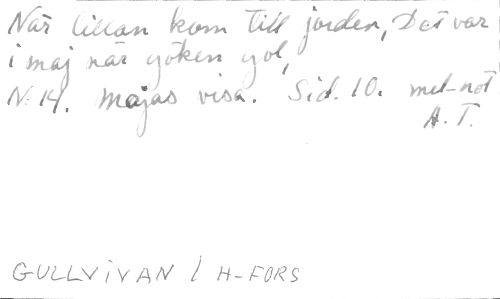 När lillan kom till jorden, Det var
i maj när göken gol,
N:14. Majas visa. Sid. 10. mel-not
A. T.
GULLVIVAN / H-FORS